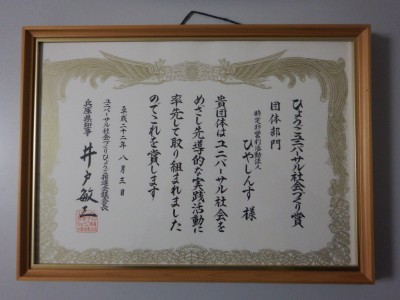 ひょうごユニバーサル社会づくり賞
団体部門
特定非営利活動法人
ひやしんす 様
貴団体はユニバーサル社会を
めざし先導的な実践活動に
率先して取り組まれました
のでこれを賞します
平成二十二年 八月 五日
ユニバーサル社会づくりひょうご推進会議会長
兵庫県知事 井戸敏三